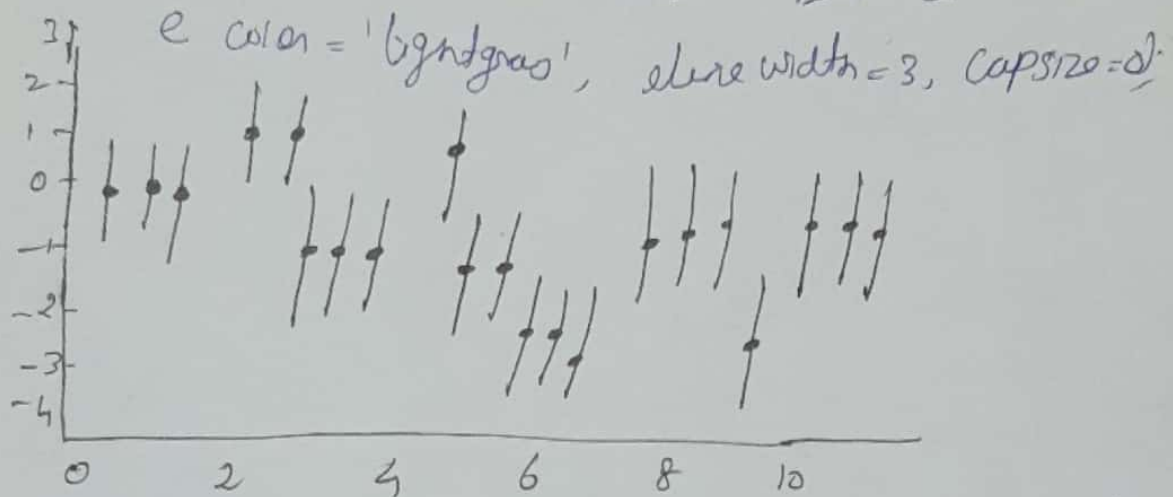 e color = 'lightgray', elinewidth = 3, capsize = 0).
3
2
1
0
-1
-2
-3
-4
0 2 4 6 8 10